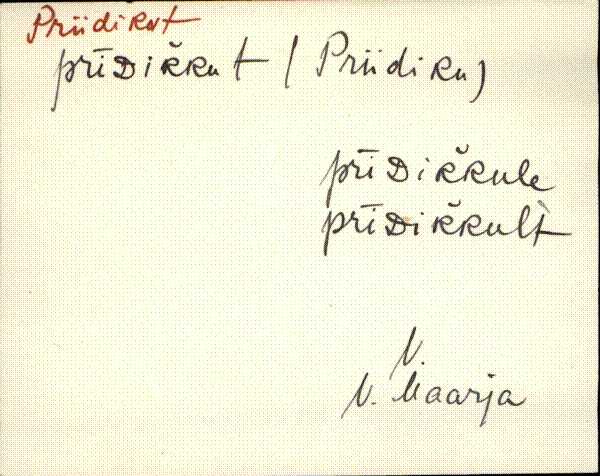 Priidikut
prīᴅik̆kut (Priidiku)
prīᴅik̆kule
prīᴅik̆kult
V.
V. Maarja